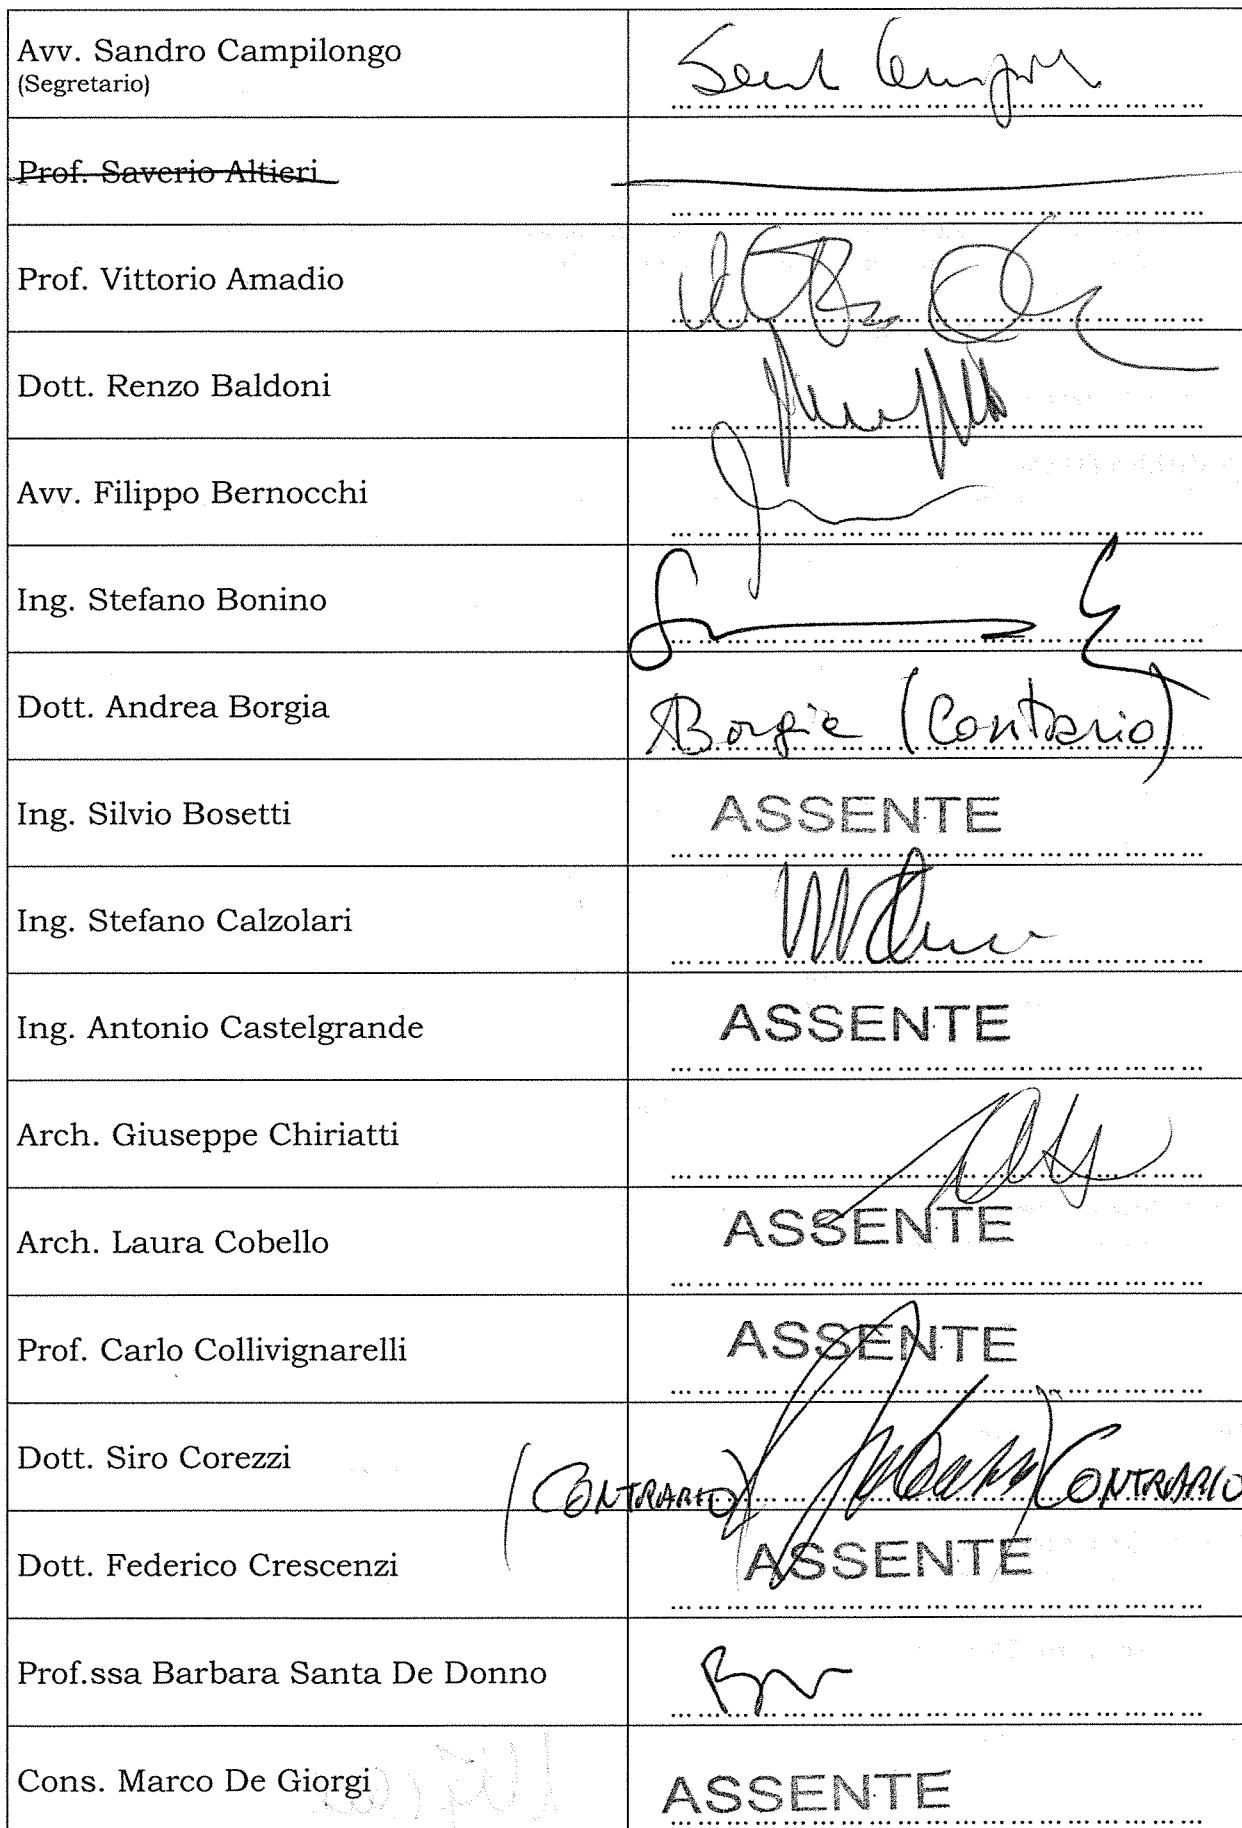 Avv. Sandro Campilongo
(Segretario)
Prof. Saverio Altieri
Prof. Vittorio Amadio
Dott. Renzo Baldoni
Avv. Filippo Bernocchi
Ing. Stefano Bonino
Dott. Andrea Borgia
ABorgia (Contrario)
Ing. Silvio Bosetti
ASSENTE
Ing. Stefano Calzolari
Ing. Antonio Castelgrande
ASSENTE
Arch. Giuseppe Chiriatti
Arch. Laura Cobello
ASSENTE
Prof. Carlo Collivignarelli
ASSENTE
Dott. Siro Corezzi
(CONTRARIO) CONTRARIO
Dott. Federico Crescenzi
ASSENTE
Prof.ssa Barbara Santa De Donno
Cons. Marco De Giorgi
ASSENTE